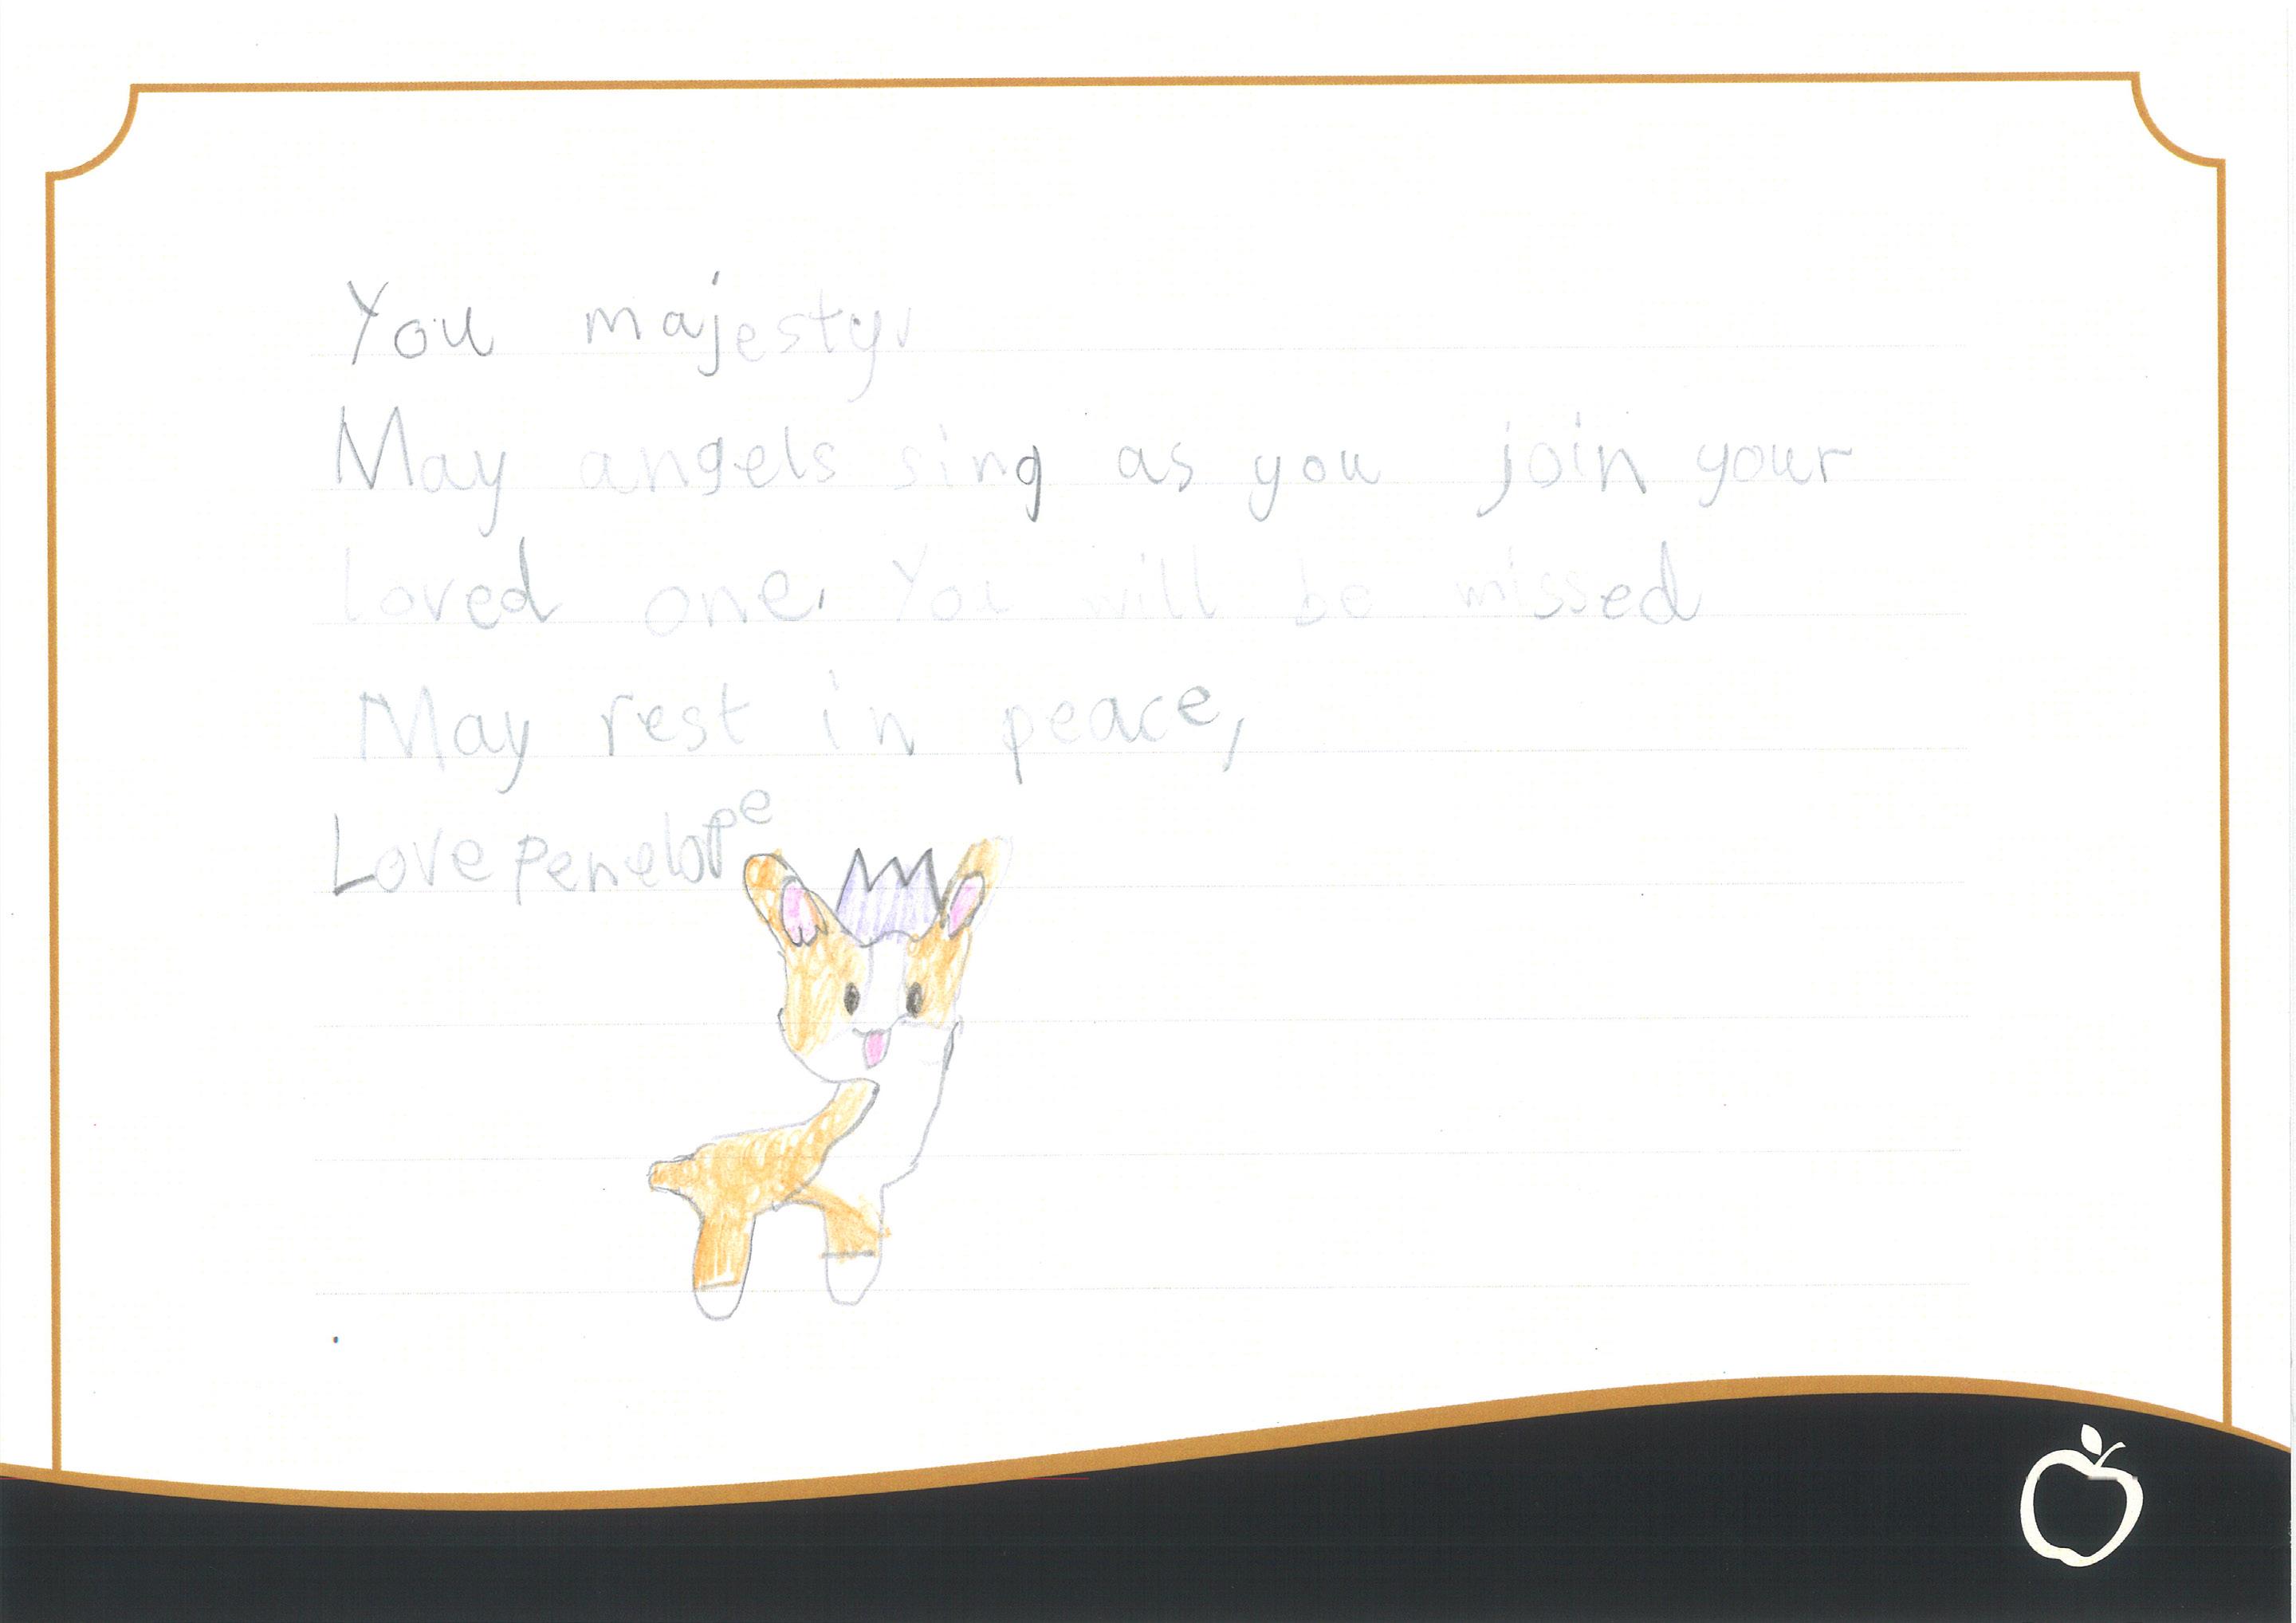 You majesty,
May angels sing as you join your
loved one. You will be missed
May rest in peace,
Love penelope